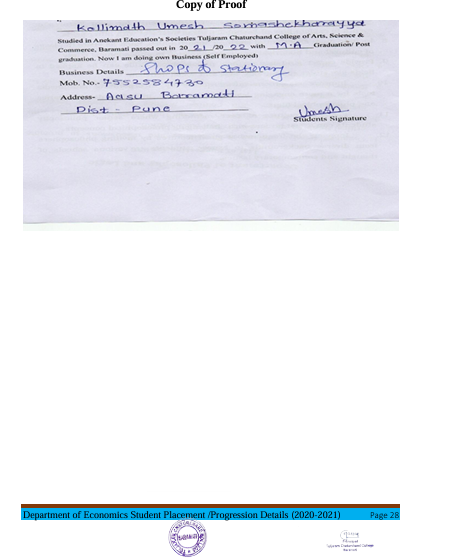 Copy of Proof
Kallimath Umesh Somashekharayya
Studied in Anekant Education's Societies Tuljaram Chaturchand College of Arts, Science &
Commerce, Baramati passed out in 20 21 /20 22 with M.A Graduation/ Post
graduation. Now I am doing own Business (Self Employed)
Business Details Shops & Stationary
Mob. No.- 7552584730
Address- Aasu Baramati
Dist - Pune
Umesh
Students Signature
Department of Economics Student Placement /Progression Details (2020-2021) Page 28
BARAMATI
Principal
Tuljaram Chaturchand College
Baramati